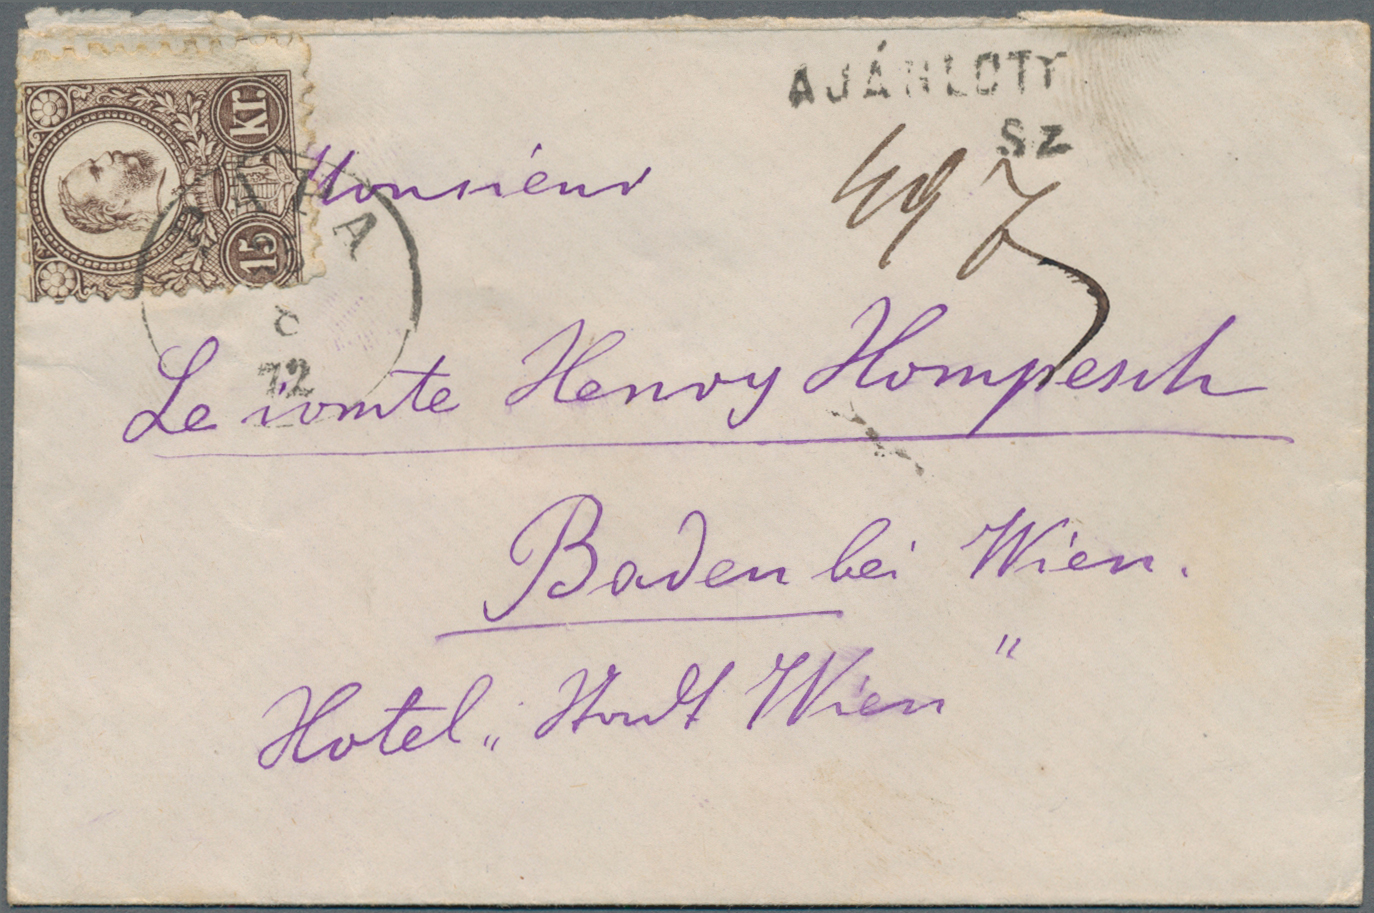 AJÁNLOTT
Sz
497
kr.
15
PAPA
8
72
Monsieur
Le comte Henry Hompesch
Baden bei Wien.
Hotel „Stadt Wien"